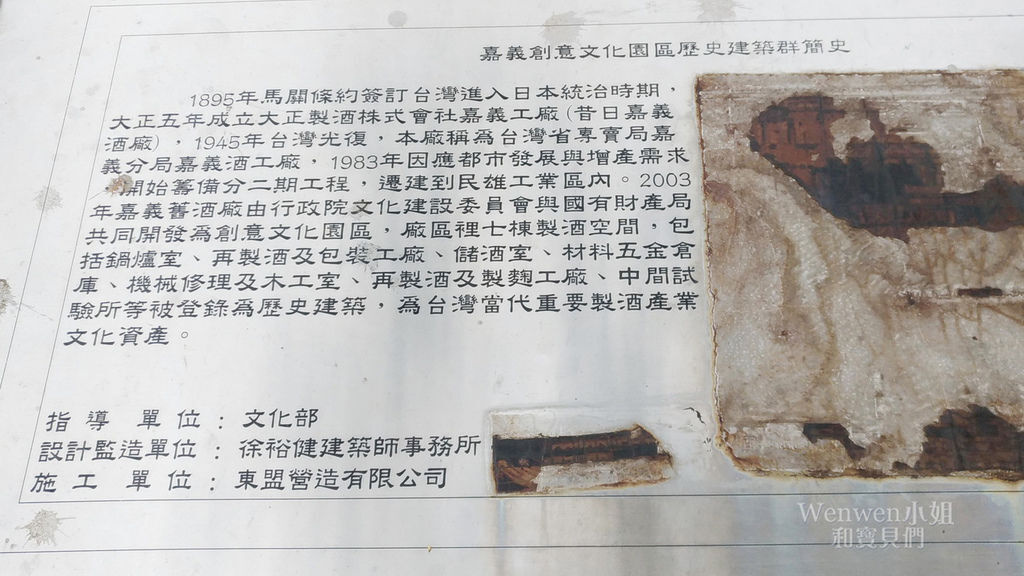 嘉義創意文化園區歷史建築群簡史
1895年馬關條約簽訂台灣進入日本統治時期，
大正五年成立大正製酒株式會社嘉義工廠(昔日嘉義
酒廠)，1945年台灣光復，本廠稱為台灣省專賣局嘉
義分局嘉義酒工廠，1983年因應都市發展與增產需求
開始籌備分二期工程，遷建到民雄工業區內。2003
年嘉義舊酒廠由行政院文化建設委員會與國有財產局
共同開發為創意文化園區，廠區裡七棟製酒空間，包
括鍋爐室、再製酒及包裝工廠、儲酒室、材料五金倉
庫、機械修理及木工室、再製酒及製麴工廠、中間試
驗所等被登錄為歷史建築，為台灣當代重要製酒產業
文化資產。
指導單位：文化部
設計監造單位：徐裕健建築師事務所
施工單位：東盟營造有限公司
Wenwen小姐
和寶貝們